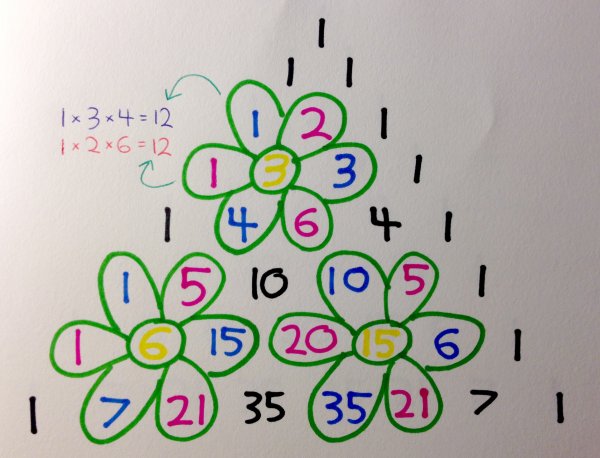 1
1 1
1 × 3 × 4 = 12
1 × 2 × 6 = 12
1 2 1
1 3 3 1
1 4 6 4 1
1 5 10 10 5 1
1 6 15 20 15 6 1
1 7 21 35 35 21 7 1